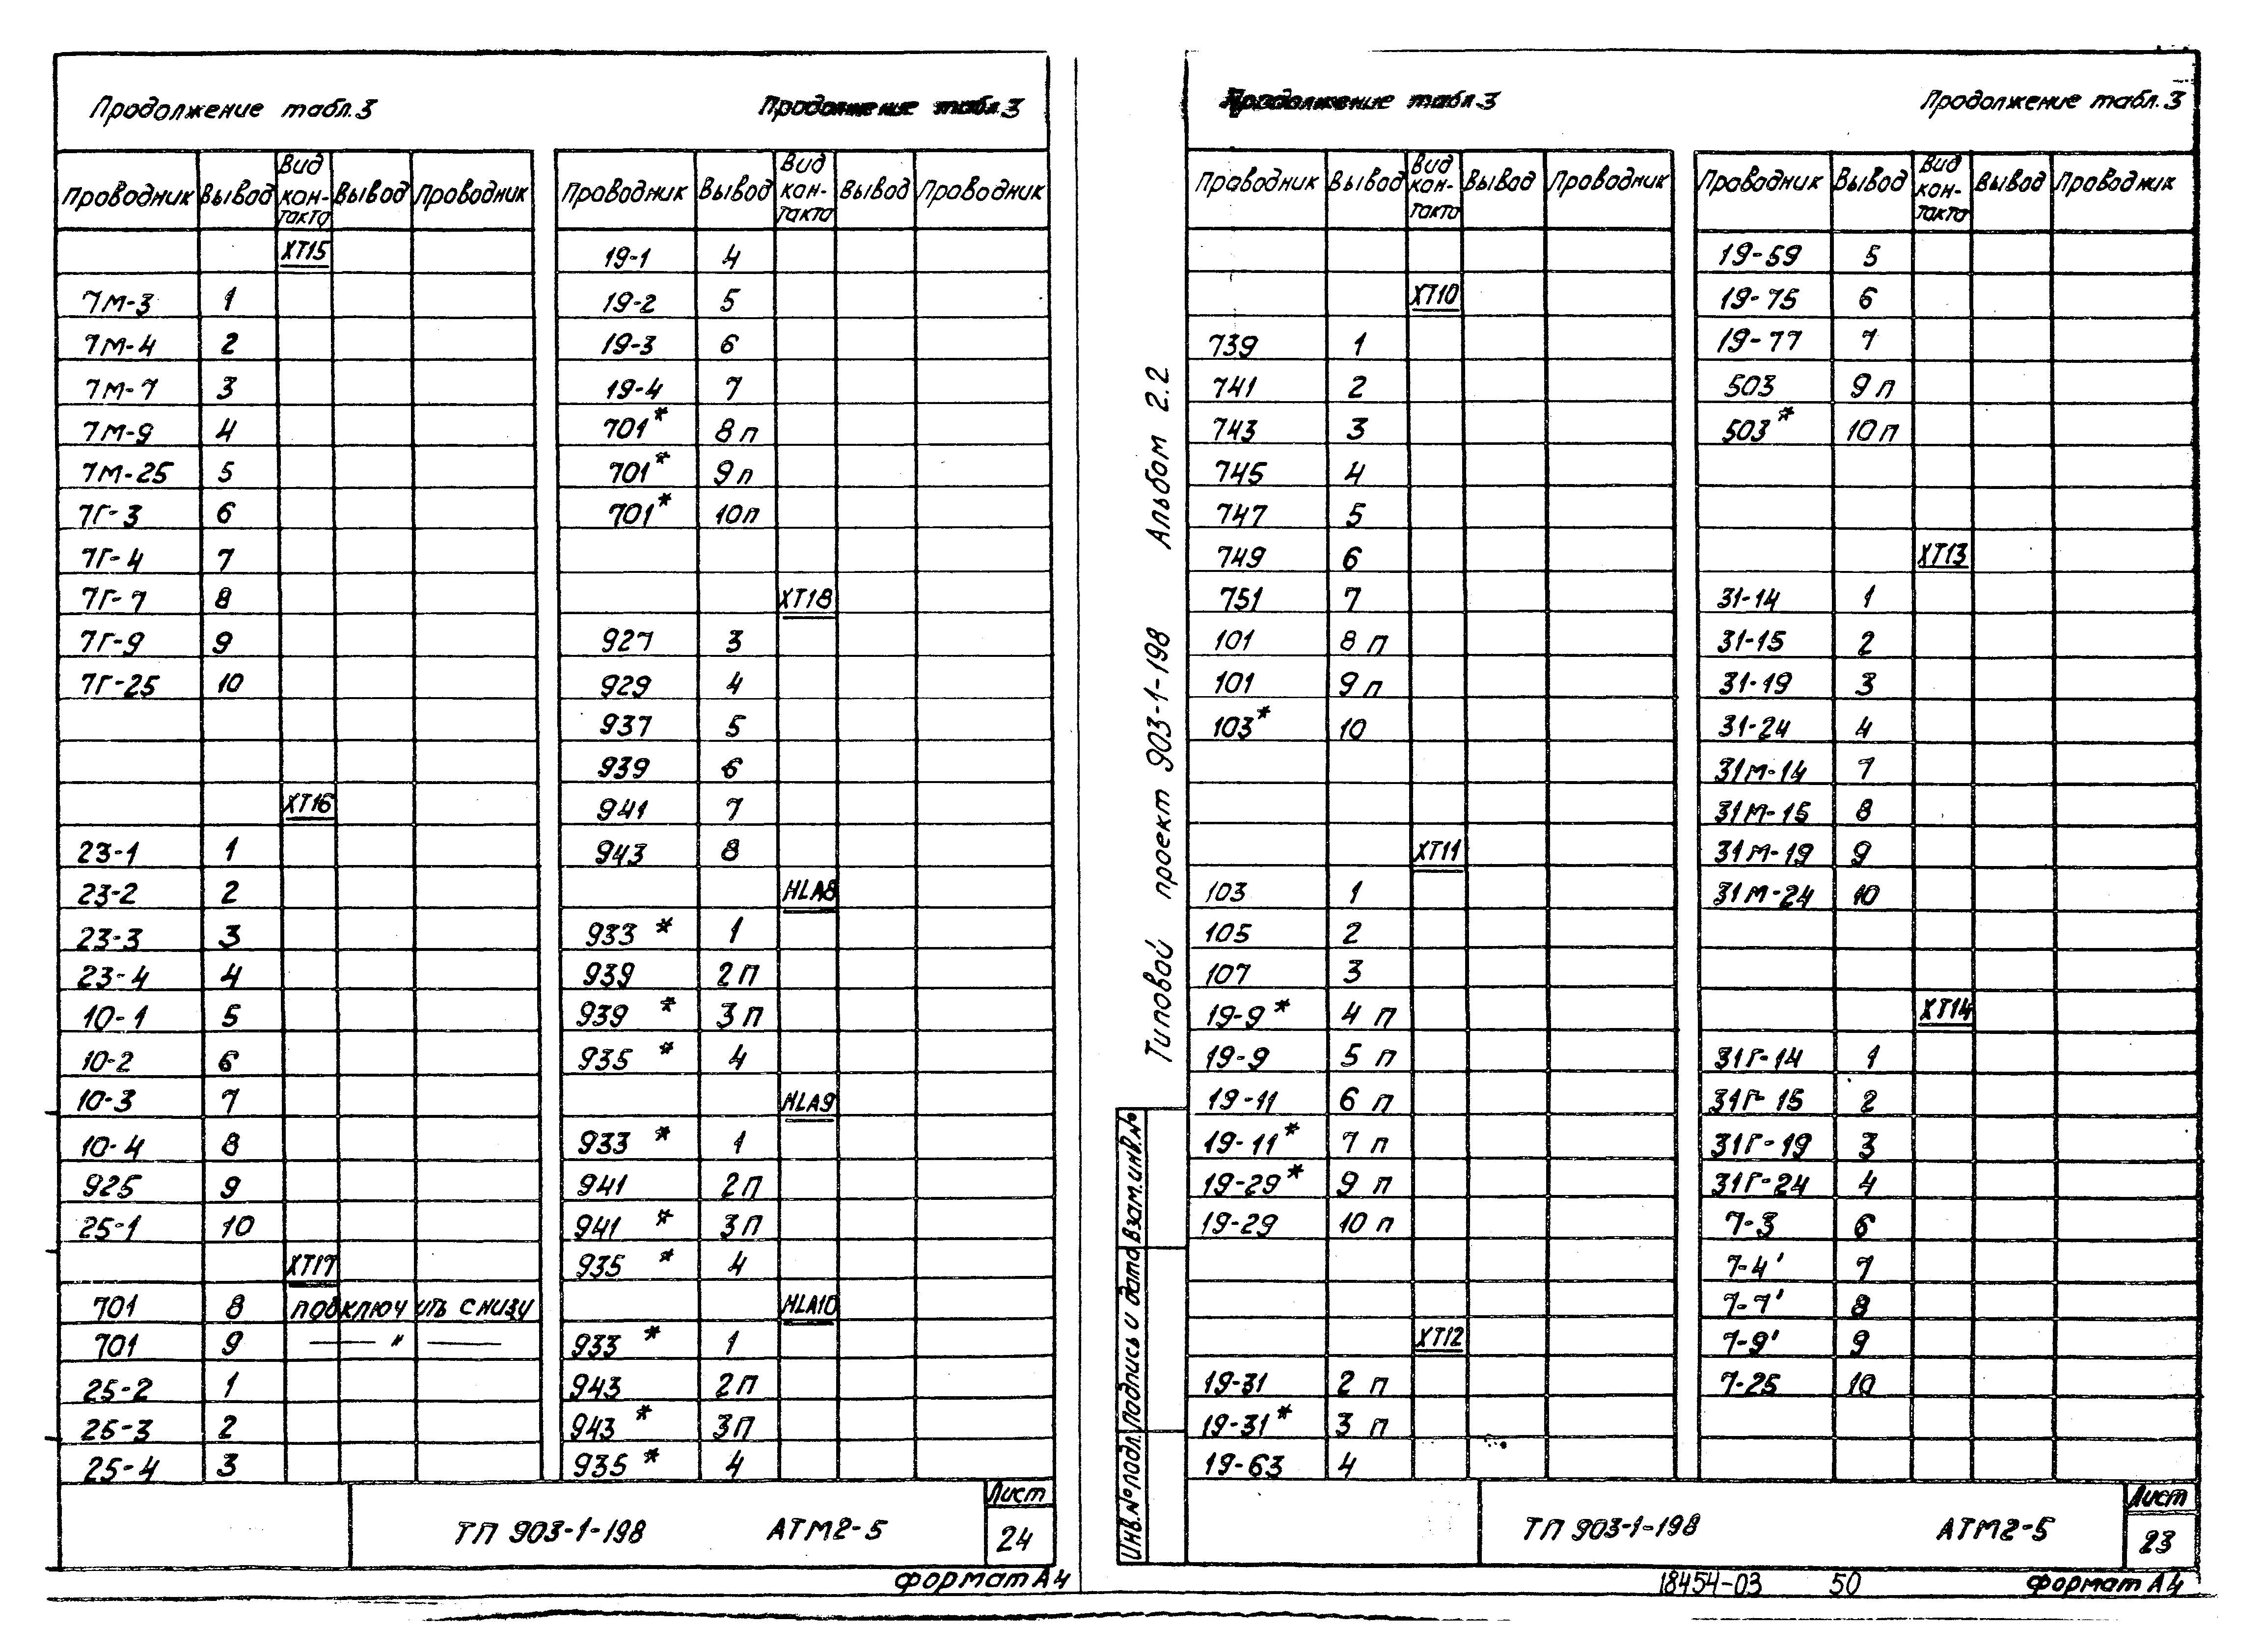 Продолжение табл.3
Продолжение табл.3
Проводник Вывод Вид кон-такта Вывод Проводник
ХТ15
7М-3 1
7М-4 2
7М-7 3
7М-9 4
7М-25 5
7Г-3 6
7Г-4 7
7Г-7 8
7Г-9 9
7Г-25 10
ХТ16
23-1 1
23-2 2
23-3 3
23-4 4
10-1 5
10-2 6
10-3 7
10-4 8
925 9
25-1 10
ХТ17
701 8 подключить снизу
701 9 — " —
25-2 1
25-3 2
25-4 3
Проводник Вывод Вид кон-такта Вывод Проводник
19-1 4
19-2 5
19-3 6
19-4 7
701* 8п
701* 9п
701* 10п
ХТ18
927 3
929 4
937 5
939 6
941 7
943 8
HLA8
933 * 1
939 2П
939 * 3П
935 * 4
HLA9
933 * 1
941 2П
941 * 3П
935 * 4
HLA10
933 * 1
943 2П
943 * 3П
935 * 4
ТП 903-1-198 АТМ2-5
Лист
24
формат А4
Продолжение табл.3
Продолжение табл.3
Альбом 2.2
Типовой проект 903-1-198
Взам.инв.№
Подпись и дата
Инв.№подл.
Проводник Вывод Вид кон-такта Вывод Проводник
ХТ10
739 1
741 2
743 3
745 4
747 5
749 6
751 7
101 8 п
101 9 п
103* 10
ХТ11
103 1
105 2
107 3
19-9* 4 п
19-9 5 п
19-11 6 п
19-11* 7 п
19-29* 9 п
19-29 10 п
ХТ12
19-31 2 п
19-31* 3 п
19-63 4
Проводник Вывод Вид кон-такта Вывод Проводник
19-59 5
19-75 6
19-77 7
503 9 п
503* 10 п
ХТ13
31-14 1
31-15 2
31-19 3
31-24 4
31М-14 7
31М-15 8
31М-19 9
31М-24 10
ХТ14
31Г-14 1
31Г-15 2
31Г-19 3
31Г-24 4
7-3 6
7-4' 7
7-7' 8
7-9' 9
7-25 10
ТП 903-1-198 АТМ2-5
Лист
23
18454-03 50 формат А4